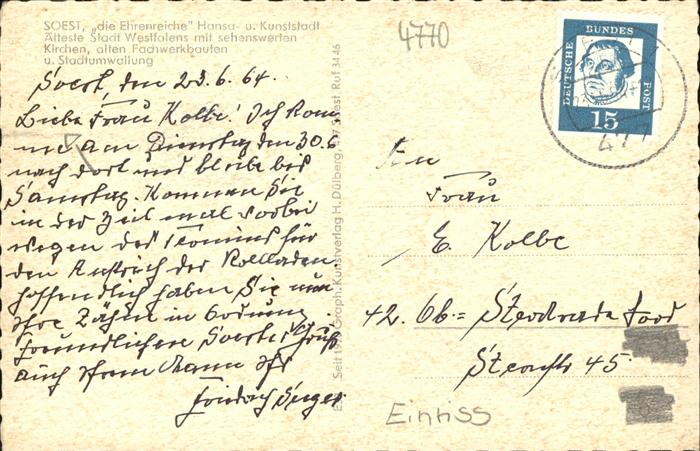 SOEST, „die Ehrenreiche" Hansa- u. Kunststadt
Älteste Stadt Westfalens mit sehenswerten
Kirchen, alten Fachwerkbauten
u. Stadtumwallung
4770
Soest, den 23.6.64.
Liebe Frau Kolbe! Ich kom-
me am Dienstag den 30.6
nach dort und bleibe bis
Samstag. Kommen Sie
in der Zeit mal vorbei
wegen des Termins für
den Anstrich der Rolladen
hoffendlich haben Sie nun
Ihre Zähne in Ordnung.
freundlichen Soester Gruß
auch Ihrem Mann Ihr
Friedrich
Seit Graph. Kunstverlag H. Dülberg, 477 Soest, Ruf 3446
DEUTSCHE BUNDES POST
15
477
An
Frau
E. Kolbe
42. Ob.= Sterkrade
45
Einriss